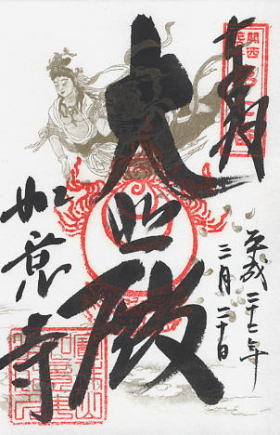 奉拝
関西
大悲殿
平成二十二年
三月二十日
如意寺